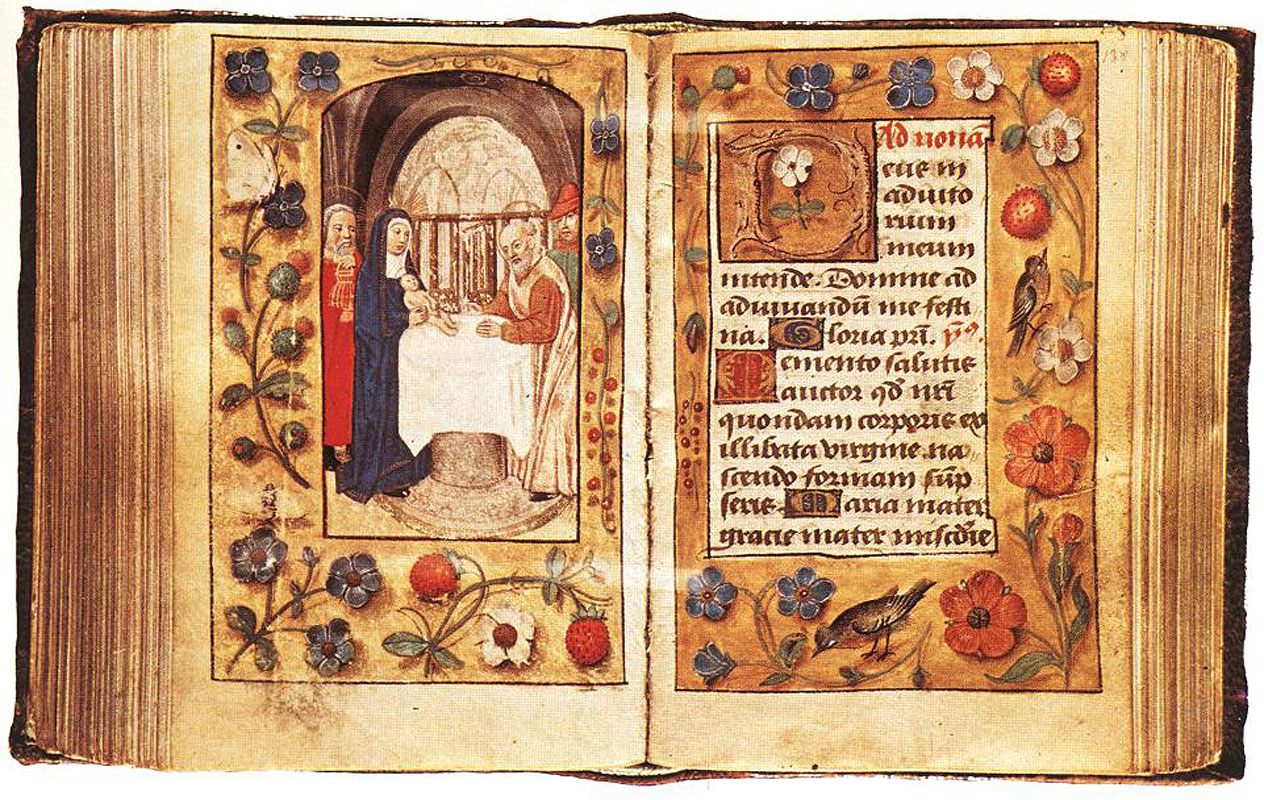 138
Ad nona
Deus in
adiuto
rium
meum
intende. Domine ad
adiuuandū me festi
na. Gloria pri. ys.
Memento salutis
auctor qd nri
quondam corporis ex
illibata virgine na
scendo formam sūp
seris. Maria mater
gracie mater miscdie